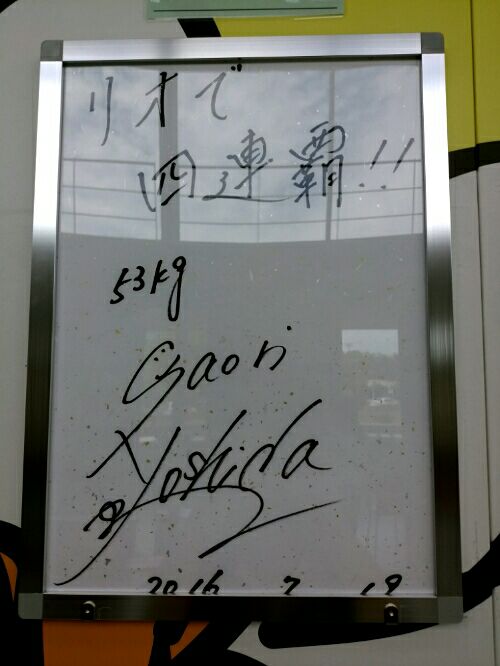 リオで
四連覇!!
53kg
Saori
Yoshida
2016 7 19